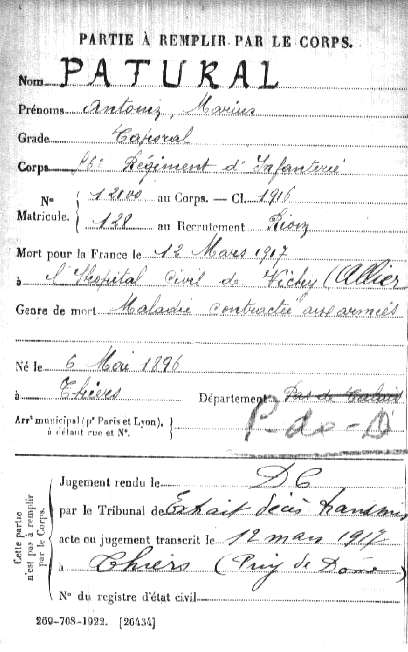 PARTIE À REMPLIR PAR LE CORPS.
Nom PATURAL
Prénoms Antoine, Marius
Grade Caporal
Corps Régiment d'Infanterie
N° Matricule. { 12100 au Corps. — Cl. 1916
128 au Recrutement Riom
Mort pour la France le 12 Mars 1917
à l'Hopital Civil de Vichy (Allier
Genre de mort Maladie contractée aux armées
Né le 6 Mai 1896
à Thiers Département Pas de Calais
P-de-D
Arrt municipal (pr Paris et Lyon), à défaut rue et N°. }
Cette partie n'est pas à remplir par le Corps.
Jugement rendu le DC
par le Tribunal de Extrait décès transmis
acte ou jugement transcrit le 12 mars 1917
à Thiers (Puy de Dôme)
N° du registre d'état civil
269-708-1922. [26434]